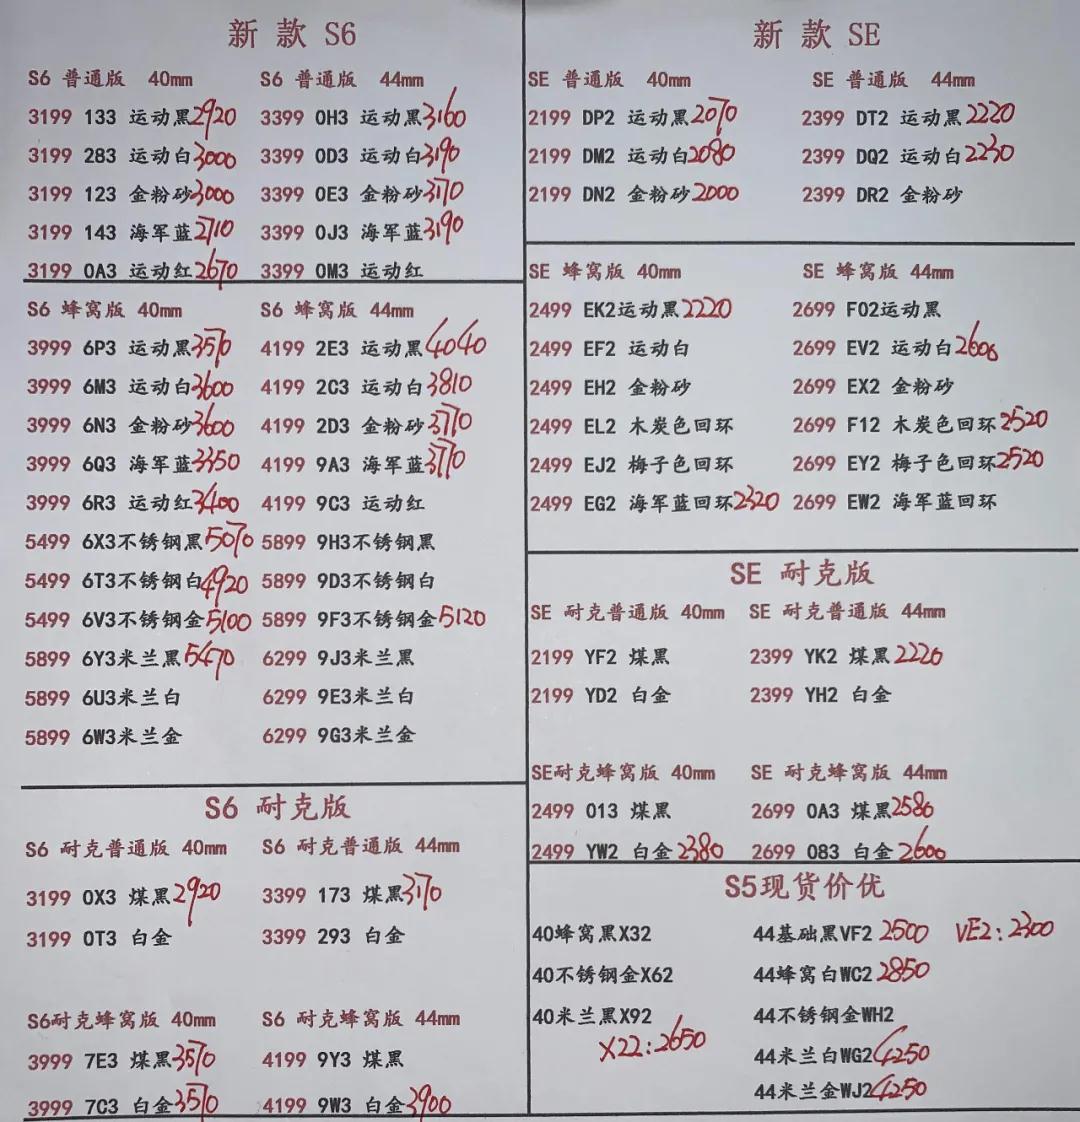 新 款 S6
S6 普通版 40mm
3199 133 运动黑2920
3199 283 运动白3000
3199 123 金粉砂3000
3199 143 海军蓝2710
3199 0A3 运动红2670
S6 普通版 44mm
3399 0H3 运动黑3160
3399 0D3 运动白3190
3399 0E3 金粉砂3170
3399 0J3 海军蓝3190
3399 0M3 运动红
S6 蜂窝版 40mm
3999 6P3 运动黑3570
3999 6M3 运动白3600
3999 6N3 金粉砂3600
3999 6Q3 海军蓝3350
3999 6R3 运动红3400
5499 6X3不锈钢黑5070
5499 6T3不锈钢白4920
5499 6V3不锈钢金5100
5899 6Y3米兰黑5470
5899 6U3米兰白
5899 6W3米兰金
S6 蜂窝版 44mm
4199 2E3 运动黑4040
4199 2C3 运动白3810
4199 2D3 金粉砂3770
4199 9A3 海军蓝3770
4199 9C3 运动红
5899 9H3不锈钢黑
5899 9D3不锈钢白
5899 9F3不锈钢金5120
6299 9J3米兰黑
6299 9E3米兰白
6299 9G3米兰金
S6 耐克版
S6 耐克普通版 40mm
3199 0X3 煤黑2920
3199 0T3 白金
S6 耐克普通版 44mm
3399 173 煤黑3170
3399 293 白金
S6耐克蜂窝版 40mm
3999 7E3 煤黑3570
3999 7C3 白金3570
S6 耐克蜂窝版 44mm
4199 9Y3 煤黑
4199 9W3 白金3900
新 款 SE
SE 普通版 40mm
2199 DP2 运动黑2070
2199 DM2 运动白2080
2199 DN2 金粉砂2000
SE 普通版 44mm
2399 DT2 运动黑2220
2399 DQ2 运动白2230
2399 DR2 金粉砂
SE 蜂窝版 40mm
2499 EK2运动黑2220
2499 EF2 运动白
2499 EH2 金粉砂
2499 EL2 木炭色回环
2499 EJ2 梅子色回环
2499 EG2 海军蓝回环2320
SE 蜂窝版 44mm
2699 F02运动黑
2699 EV2 运动白2606
2699 EX2 金粉砂
2699 F12 木炭色回环2520
2699 EY2 梅子色回环2520
2699 EW2 海军蓝回环
SE 耐克版
SE 耐克普通版 40mm
2199 YF2 煤黑
2199 YD2 白金
SE 耐克普通版 44mm
2399 YK2 煤黑2220
2399 YH2 白金
SE耐克蜂窝版 40mm
2499 013 煤黑
2499 YW2 白金2380
SE 耐克蜂窝版 44mm
2699 0A3 煤黑2580
2699 083 白金2600
S5现货价优
40蜂窝黑X32
40不锈钢金X62
40米兰黑X92
X22:2650
44基础黑VF2 2500 VE2:2300
44蜂窝白WC2 2850
44不锈钢金WH2
44米兰白WG2 4250
44米兰金WJ2 4250